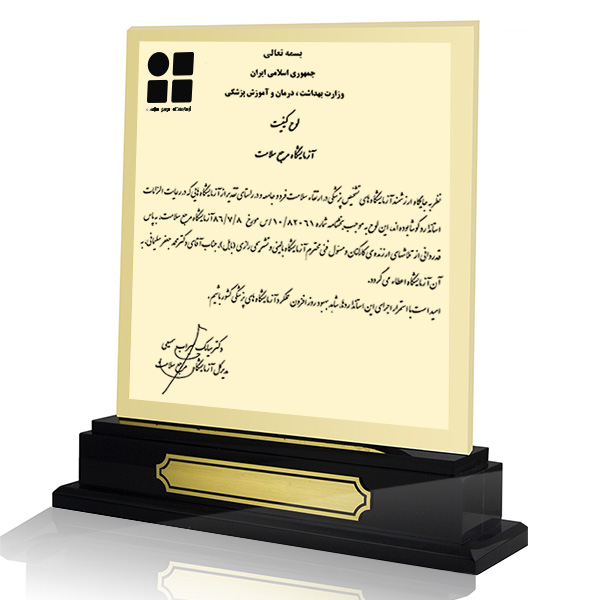 بسمه تعالی
جمهوری اسلامی ایران
وزارت بهداشت ، درمان و آموزش پزشکی
لوح کیفیت
آزمایشگاه مرجع سلامت
نظر به جایگاه ارزشمند آزمایشگاه های تشخیص پزشکی در ارتقاء سلامت فرد و جامعه و در راستای تقدیر از آزمایشگاه هایی که در رعایت الزامات
استاندارد کوشا بوده اند، این لوح به موجب بخشنامه شماره ۱۰/۸۲۰۶۱/س مورخ ۸۶/۷/۸ آزمایشگاه مرجع سلامت، به پاس
قدردانی از تلاشهای ارزنده ی کارکنان و مسئول فنی محترم آزمایشگاه بالینی و تشریحی رازی (بابل)، جناب آقای دکتر محمد جعفر سلیمانی، به
آن آزمایشگاه اعطاء می گردد.
امید است با استمرار اجرای این استانداردها، شاهد بهبود روز افزون عملکرد آزمایشگاه های پزشکی کشور باشیم.
دکتر سیامک
مدیرکل آزمایشگاه مرجع سلامت